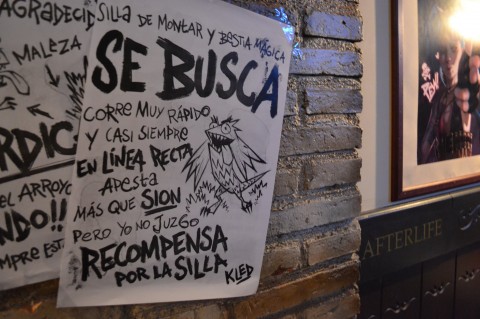 AGRADECID
MALEZA
RDIC
EL ARROYO
NDO!!
MPRE EST
SILLA DE MONTAR Y BESTIA MÁGICA
SE BUSCA
CORRE MUY RÁPIDO
Y CASI SIEMPRE
EN LÍNEA RECTA
APESTA
MÁS QUE SION
PERO YO NO JUZGO
RECOMPENSA
POR LA SILLA
KLED
AFTERLIFE